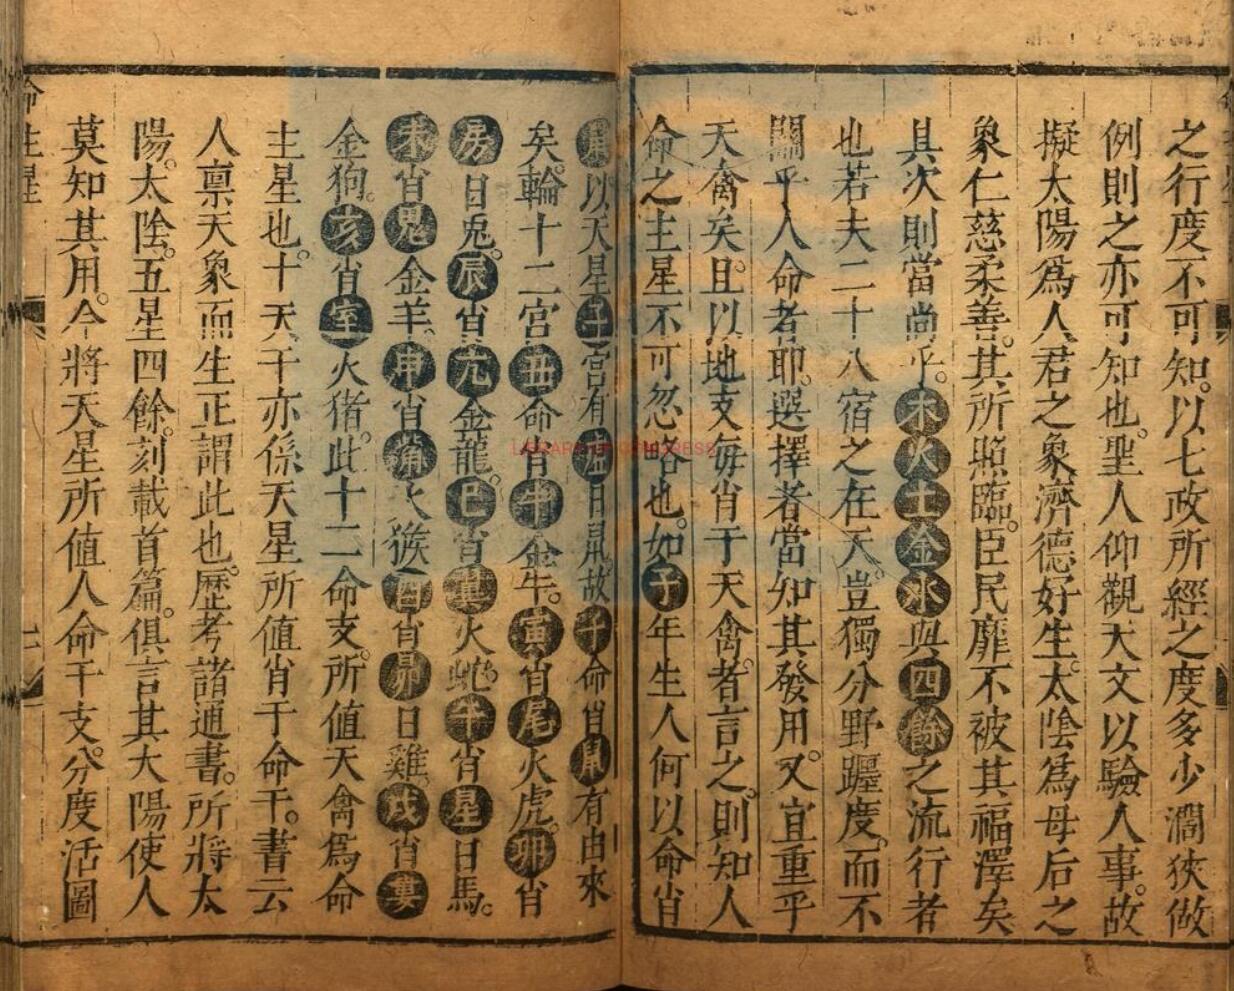 之行度不可知。以七政所經之度多少濶狹做
例則之亦可知也。聖人仰觀天文以驗人事。故
擬太陽爲人君之象濟德好生。太陰爲母后之
象仁慈柔善。其所照臨。臣民靡不被其福澤矣
其次則當尚乎。木火土金水與四餘之流行者
也若夫二十八宿之在天。豈獨分野躔度。而不
關乎人命者耶。選擇者當知其發用。又宜重乎
天禽矣。且以地支每肖于天禽。者言之。則知人
命之主星不可忽略也。如子年生人何以命肖
以天星子宮有虛日鼠。故子命肖鼠有由來
矣。輪十二宮丑命肖牛金牛。寅肖尾火虎。卯肖
房日兎。辰肖亢金龍。巳肖翼火蛇。午肖星日馬。
未肖鬼金羊、申肖觜火猴酉肖昴日雞。戌肖婁
金狗。亥肖室火猪。此十二命支。所値天禽爲命
主星也。十天干亦係天星所値肖于命干。書云
人禀天象而生正謂此也。歷考諸通書。所將太
陽。太陰。五星四餘。刻載首篇。俱言其大陽使人
莫知其用。今將天星所値人命干支。分度活圖
LIBRARY OF CONGRESS